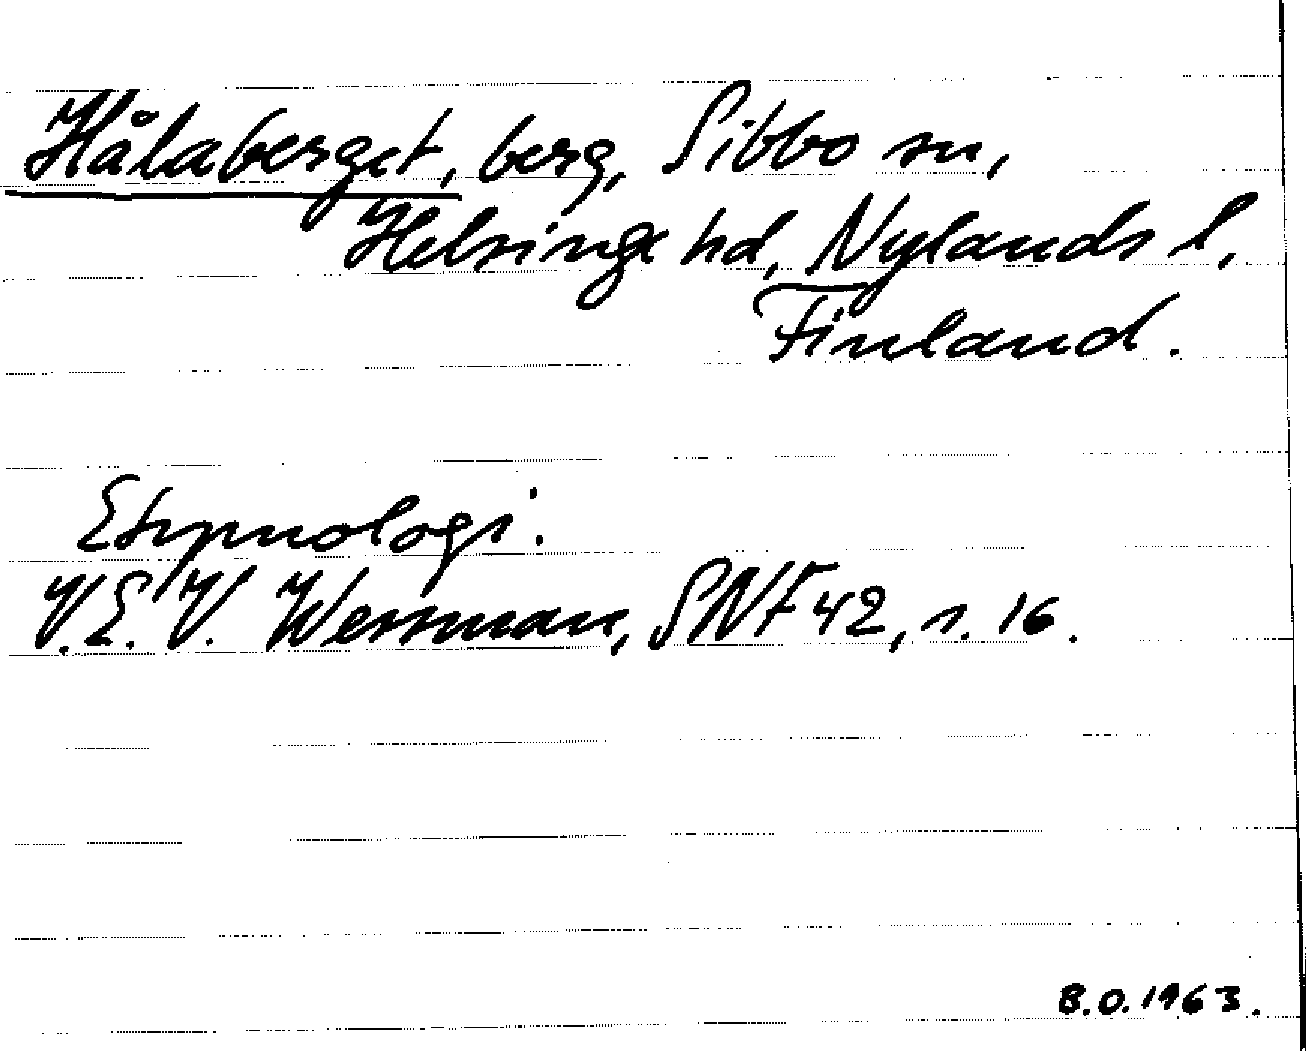 Hålaberget, berg, Sibbo sn,
Helsinge hd, Nylands l,
Finland.
Etymologi.
V.E.V. Wessman, SNF 42, s. 16.
B.O. 1963.